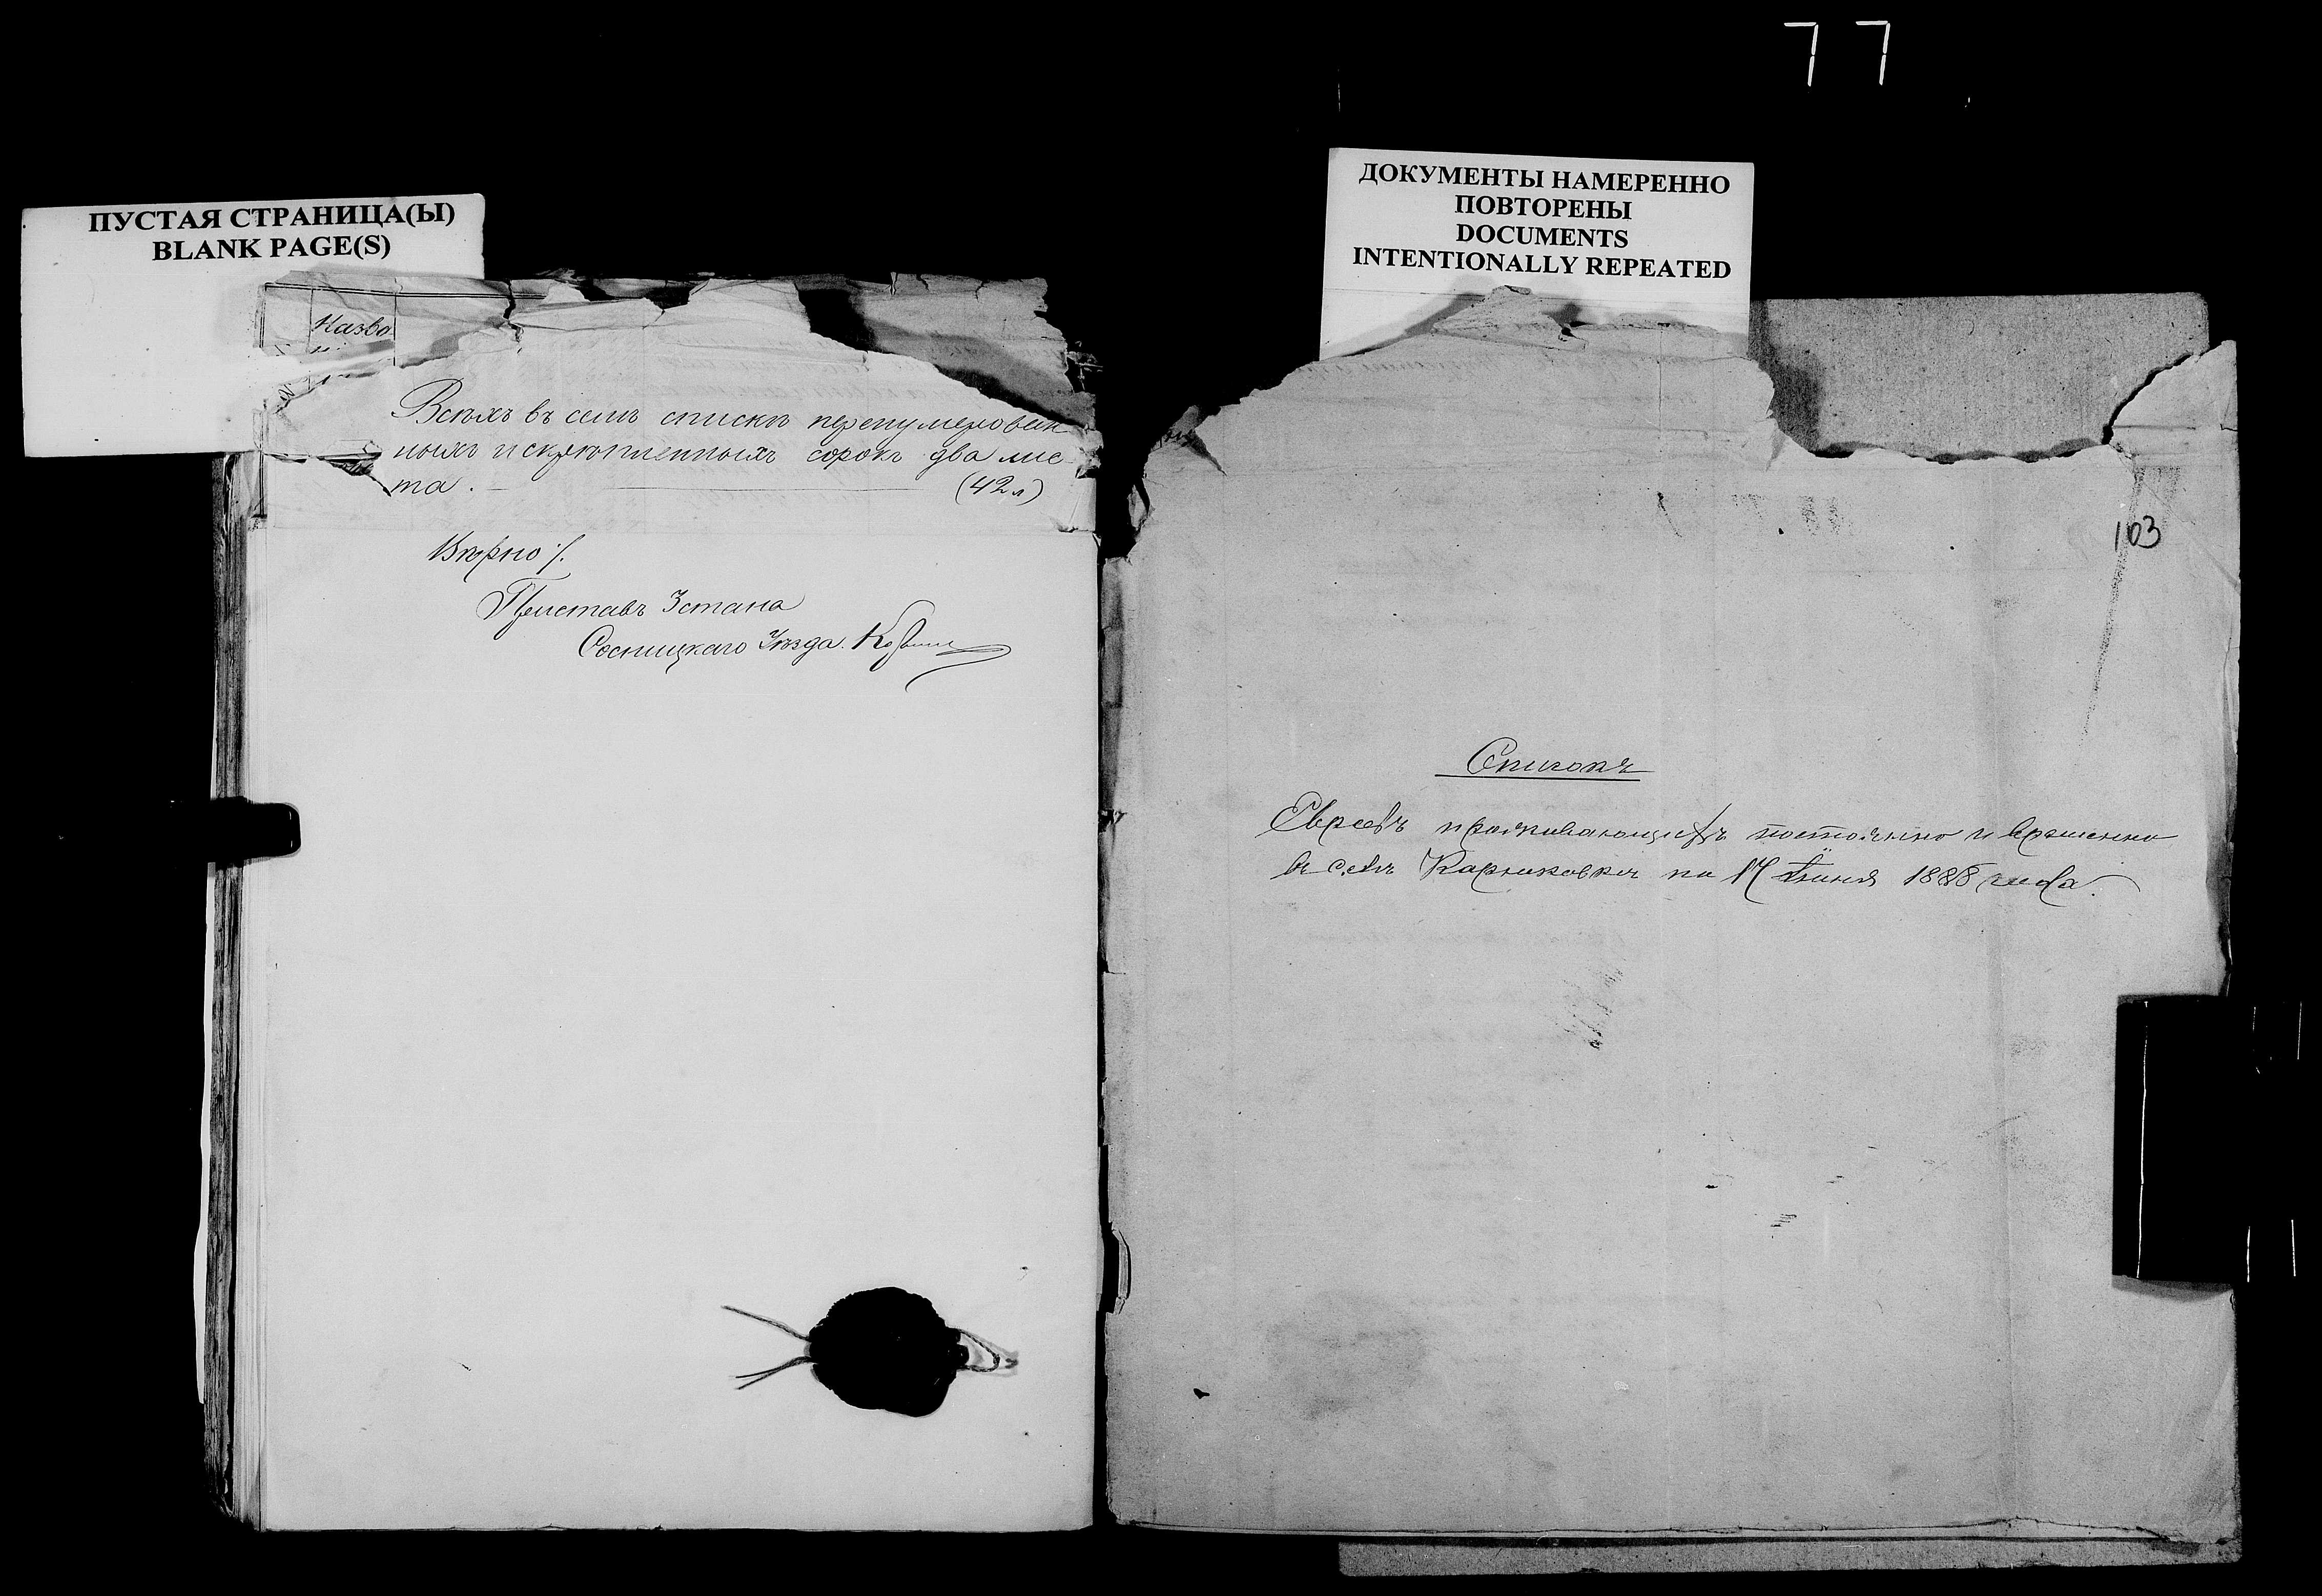 77
ПУСТАЯ СТРАНИЦА(Ы)
BLANK PAGE(S)
Назва
Всѣхъ въ семъ спискѣ перенумерован
ныхъ и скрѣпленныхъ сорокъ два лис
та. (42 л)
Вѣрно:
Приставъ 3 стана
Сосницкаго Уѣзда.
ДОКУМЕНТЫ НАМЕРЕННО
ПОВТОРЕНЫ
DOCUMENTS
INTENTIONALLY REPEATED
103
Списокъ
Евреевъ проживающихъ постоянно и временно
въ селѣ Карюковкѣ по 17 Іюня 1888 года.